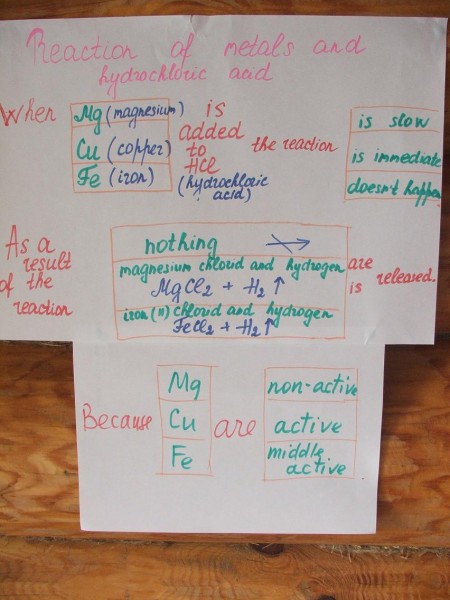 Reaction of metals and
hydrochloric acid
When
Mg (magnesium)
Cu (copper)
Fe (iron)
is
added
to
HCl
(hydrochloric
acid)
the reaction
is slow
is immediate
doesn't happen
As a
result
of the
reaction
nothing
magnesium chlorid and hydrogen
MgCl2 + H2↑
iron (II) chlorid and hydrogen
FeCl2 + H2↑
are
is
released.
Because
Mg
Cu
Fe
are
non-active
active
middle
active